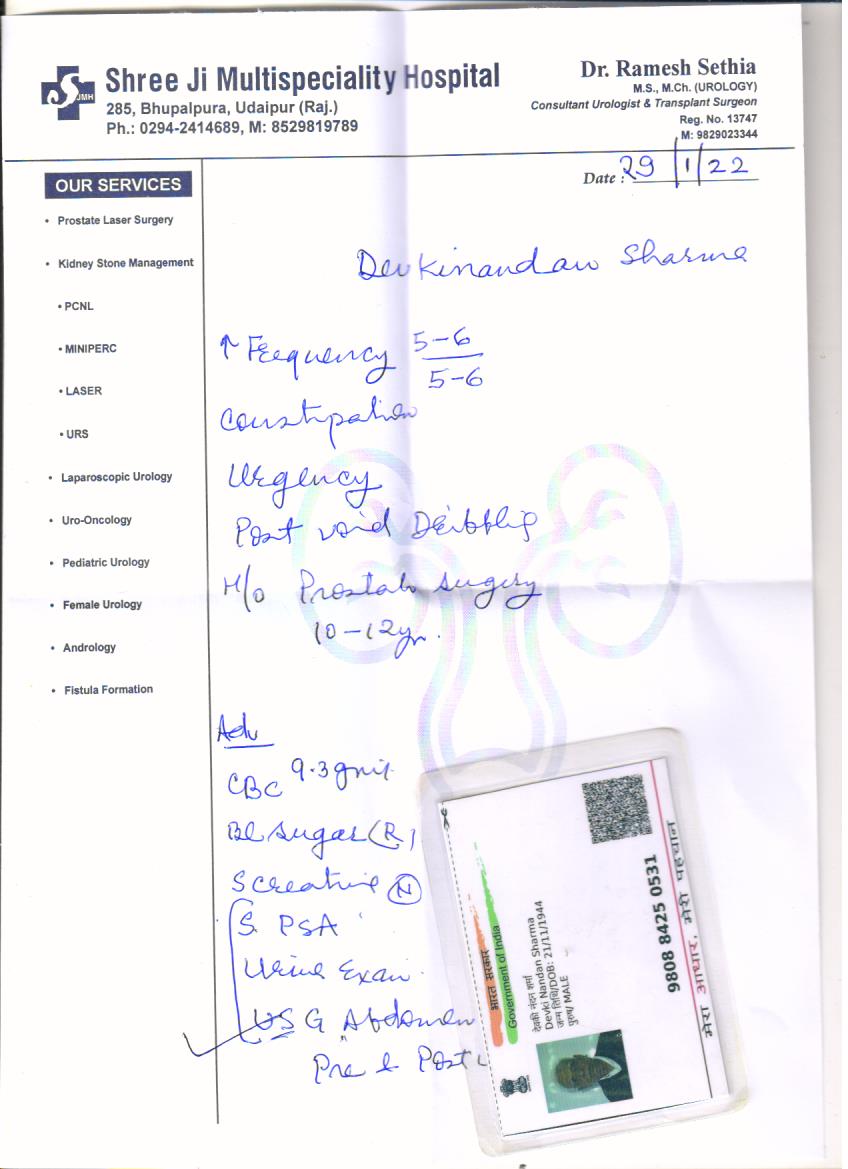 Shree Ji Multispeciality Hospital
285, Bhupalpura, Udaipur (Raj.)
Ph.: 0294-2414689, M: 8529819789
JMH
Dr. Ramesh Sethia
M.S., M.Ch. (UROLOGY)
Consultant Urologist & Transplant Surgeon
Reg. No. 13747
M: 9829023344
Date : 29/1/22
OUR SERVICES
• Prostate Laser Surgery
• Kidney Stone Management
• PCNL
• MINIPERC
• LASER
• URS
• Laparoscopic Urology
• Uro-Oncology
• Pediatric Urology
• Female Urology
• Andrology
• Fistula Formation
Devkinandan Sharma
↑ Frequency 5-6
5-6
Constipation
Urgency
Post void Dribbling
H/o Prostate surgery
10-12yr.
Adv
CBC 9.3gm%
Bl sugar (R)
S creatine (N)
S. PSA
Urine Exam.
USG Abdomen
Pre & Post
भारत सरकार
Government of India
देवकी नंदन शर्मा
Devki Nandan Sharma
जन्म तिथि/DOB: 21/11/1944
पुरुष/ MALE
9808 8425 0531
मेरा आधार, मेरी पहचान